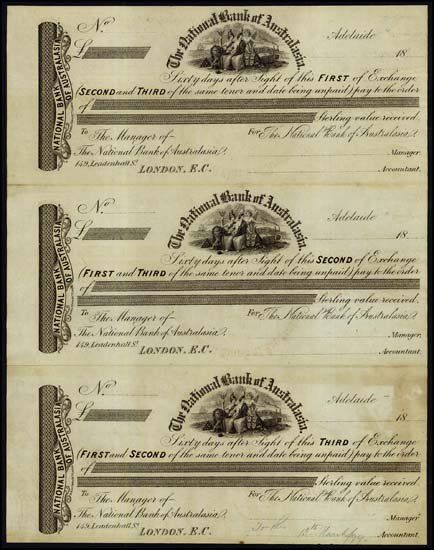 No
The National Bank of Australasia.
Adelaide
£
18
NATIONAL BANK
OF AUSTRALASIA
Sixty days after Sight of this FIRST of Exchange
(SECOND and THIRD of the same tenor and date being unpaid) pay to the order
of
Sterling value received.
To The Manager of
For The National Bank of Australasia.
The National Bank of Australasia.
Manager.
149, Leadenhall St.
LONDON, E.C.
Accountant.
No
The National Bank of Australasia.
Adelaide
£
18
NATIONAL BANK
OF AUSTRALASIA
Sixty days after Sight of this SECOND of Exchange
(FIRST and THIRD of the same tenor and date being unpaid) pay to the order
of
Sterling value received.
To The Manager of
For The National Bank of Australasia.
The National Bank of Australasia.
Manager.
149, Leadenhall St.
LONDON, E.C.
Accountant.
No
The National Bank of Australasia.
Adelaide
£
18
NATIONAL BANK
OF AUSTRALASIA
Sixty days after Sight of this THIRD of Exchange
(FIRST and SECOND of the same tenor and date being unpaid) pay to the order
of
Sterling value received
To The Manager of
For The National Bank of Australasia.
The National Bank of Australasia.
Manager.
149, Leadenhall St.
LONDON, E.C.
Accountant.